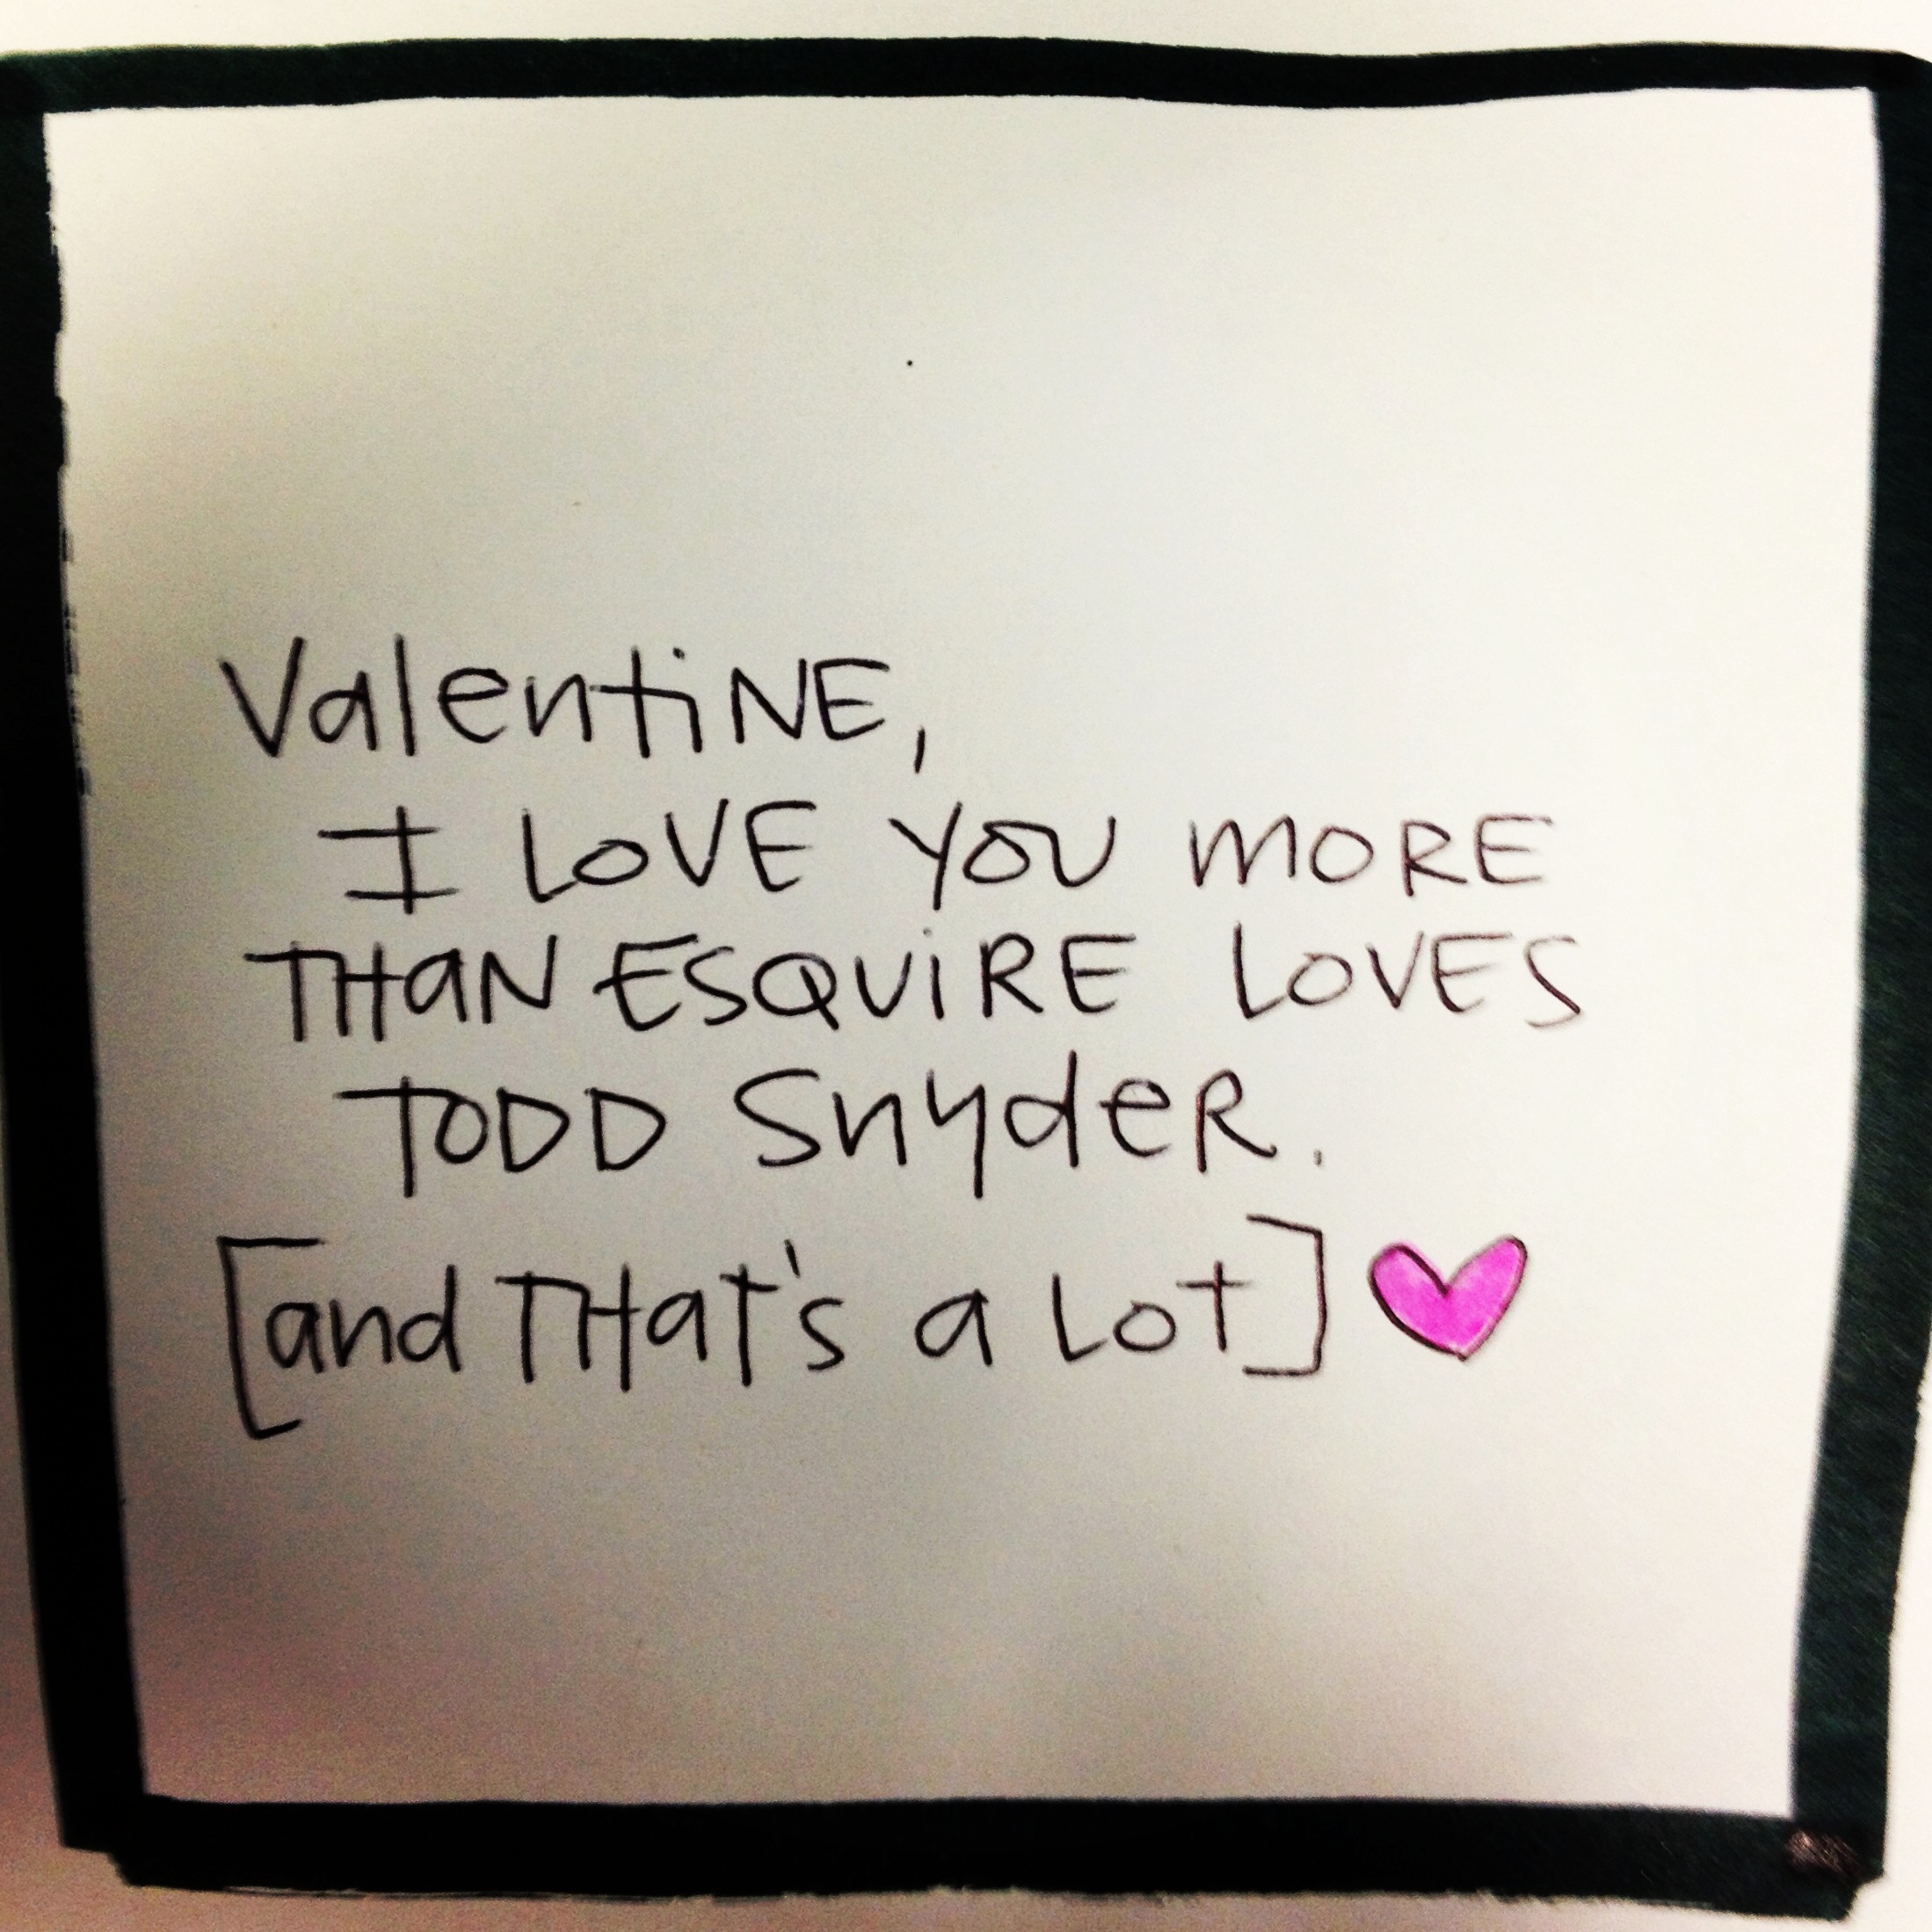 ValentiNE,
I LOVE YOU MORE
THaN ESQUiRE LOVES
TODD SnydeR.
[and THaT's a Lot]